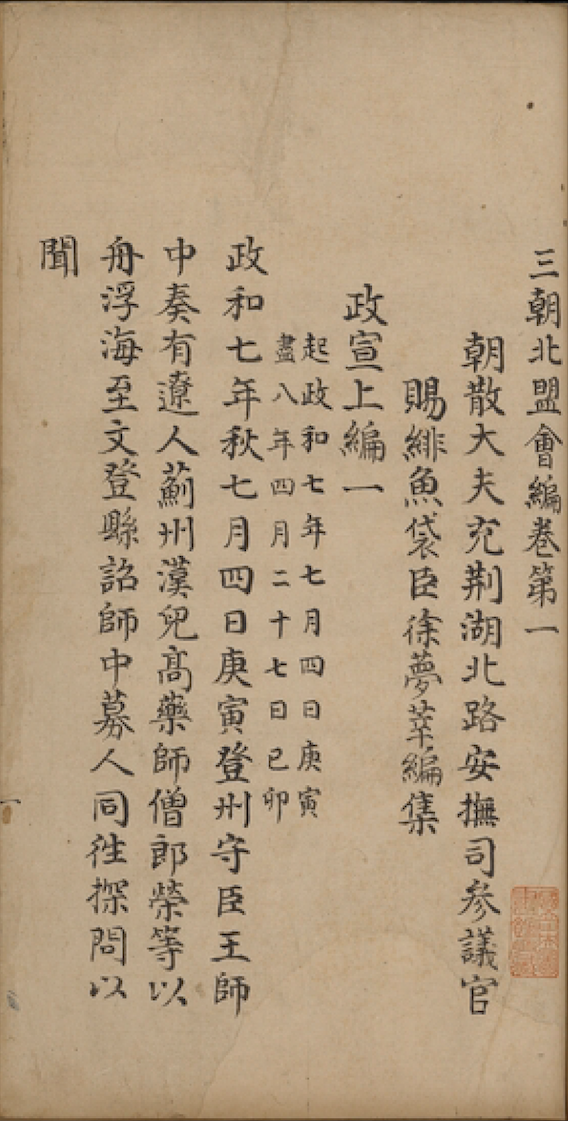 三朝北盟會編卷第一
朝散大夫充荆湖北路安撫司參議官
賜緋魚袋臣徐夢莘編集
政宣上編一
起政和七年七月四日庚寅
盡八年四月二十七日已卯
政和七年秋七月四日庚寅登州守臣王師
中奏有遼人薊州漢兒髙藥師僧郎榮等以
舟浮海至文登縣詔師中募人同徃探問以
聞